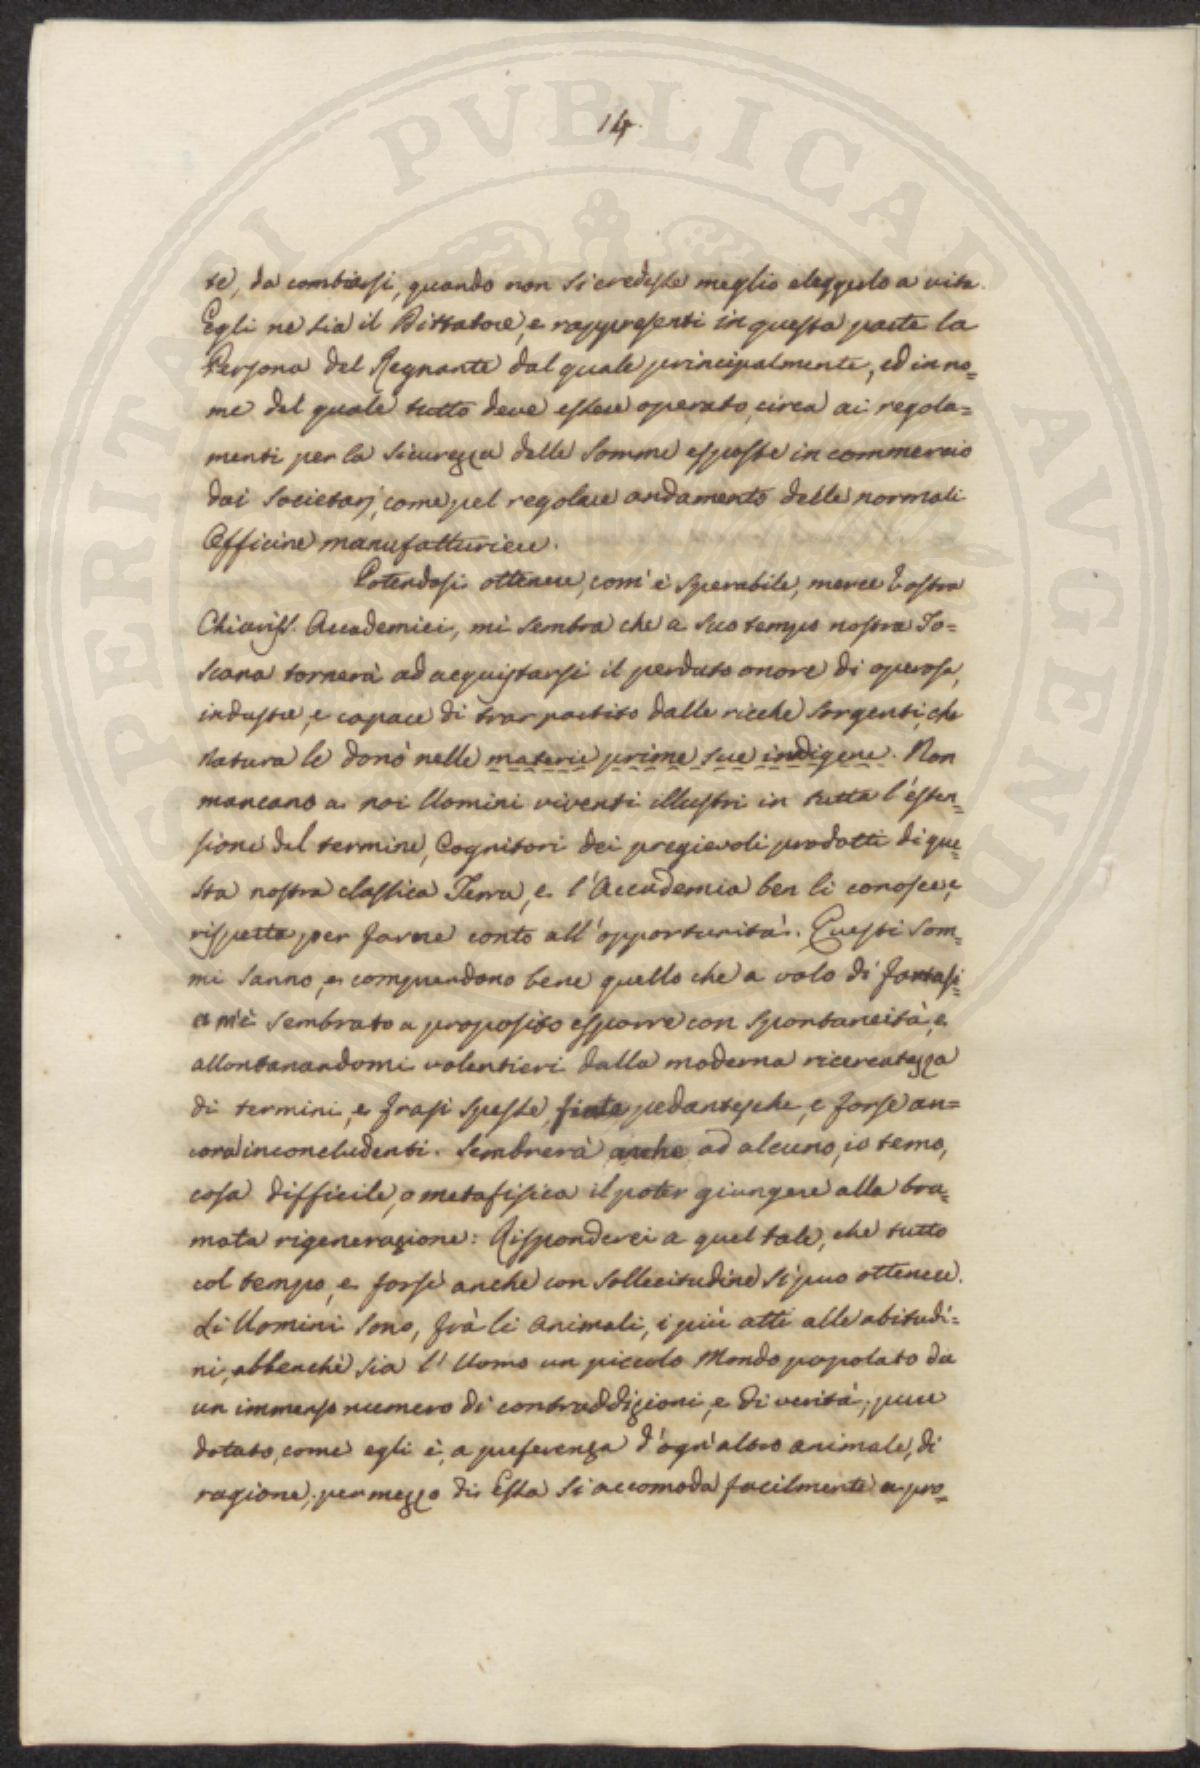 14.
te, da combiarsi, quando non si credesse meglio eleggerlo a vita.
Egli ne sia il Dittatore, e rappresenti in questa parte la
Persona del Regnante dal quale principalmente, ed in no=
me del quale tutto deve essere operato, circa ai regola=
menti per la sicurezza delle somme esposte in commercio
dai Societarj, come pel regolare andamento delle normali
Officine manufatturiere.
Potendosi ottenere, com'è sperabile, mercè Vostra
Chiariss. Accademici, mi sembra che a suo tempo nostra To=
scana tornerà ad acquistarsi il perduto onore di operosa,
industre, e capace di trar partito dalle ricche sorgenti, che
Natura le donò nelle materie prime sue indigene. Non
mancano a noi Uomini viventi illustri in tutta l'esten=
sione del termine, Cognitori dei pregievoli prodotti di que=
sta nostra classica Terra, e l'Accademia ben li conosce, e
rispetta per farne conto all'opportunità. Questi Som=
mi sanno, e comprendono bene quello che a volo di fantasi=
a m'è sembrato a proposito esporre con spontaneità, e
allontanandomi volentieri dalla moderna ricercatezza
di termini, e frasi spesse, fiate pedantesche, e forse an=
cora inconcludenti. Sembrerà anche ad alcuno, io temo,
cosa difficile, o metafisica il poter giungere alla bra=
mata rigenerazione: Risponderei a quel tale, che tutto
col tempo, e forse anche con sollecitudine si può ottenere.
Li Uomini sono, frà li Animali, i più atti alle abitudi=
ni, abbenchè sia l'Uomo un piccolo Mondo popolato da
un immenso numero di contraddizioni, e di verità; pure
dotato, come egli è, a preferenza d'ogn'altro animale, di
ragione, per mezzo di Essa si accomoda facilmente a pro=
SPERITATI PVBLICAE AVGENDAE